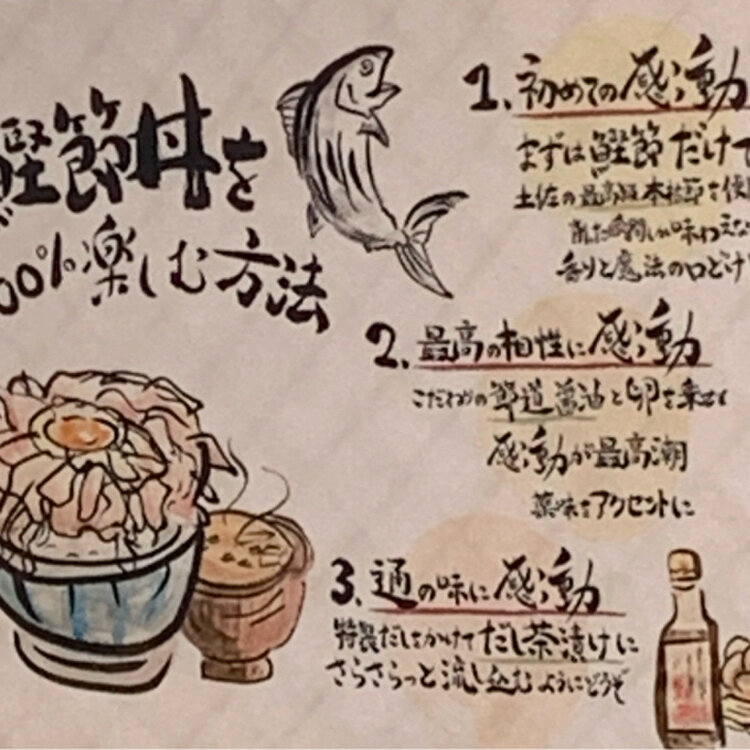 鰹節丼を
00%楽しむ方法
1、初めての感動
まずは鰹節だけで
土佐の最高級本枯節を使
削た瞬間しか味わえな
香りと魔法の口どけ
2、最高の相性に感動
こだわりの 醤油と卵を乗せ
感動が最高潮
薬味をアクセントに
3、通の味に感動
特製だしをかけてだし茶漬けに
さらさらっと流し込むようにどうぞ